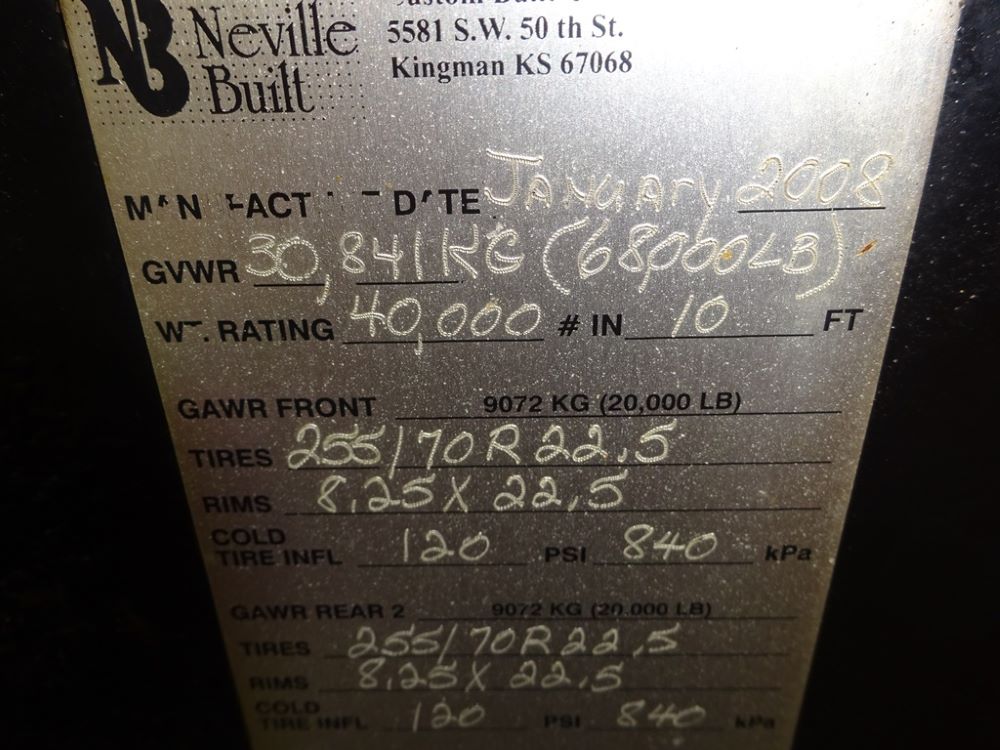 NB Neville Built
5581 S.W. 50 th St.
Kingman KS 67068
DATE JANUARY 2008
GVWR 30,841 KG (68,000 LB)
WT. RATING 40,000 # IN 10 FT
GAWR FRONT 9072 KG (20,000 LB)
TIRES 255/70 R 22.5
RIMS 8.25 X 22.5
COLD
TIRE INFL 120 PSI 840 kPa
GAWR REAR 2 9072 KG (20.000 LB)
TIRES 255/70 R 22.5
RIMS 8.25 X 22.5
COLD
TIRE INFL 120 PSI 840 kPa